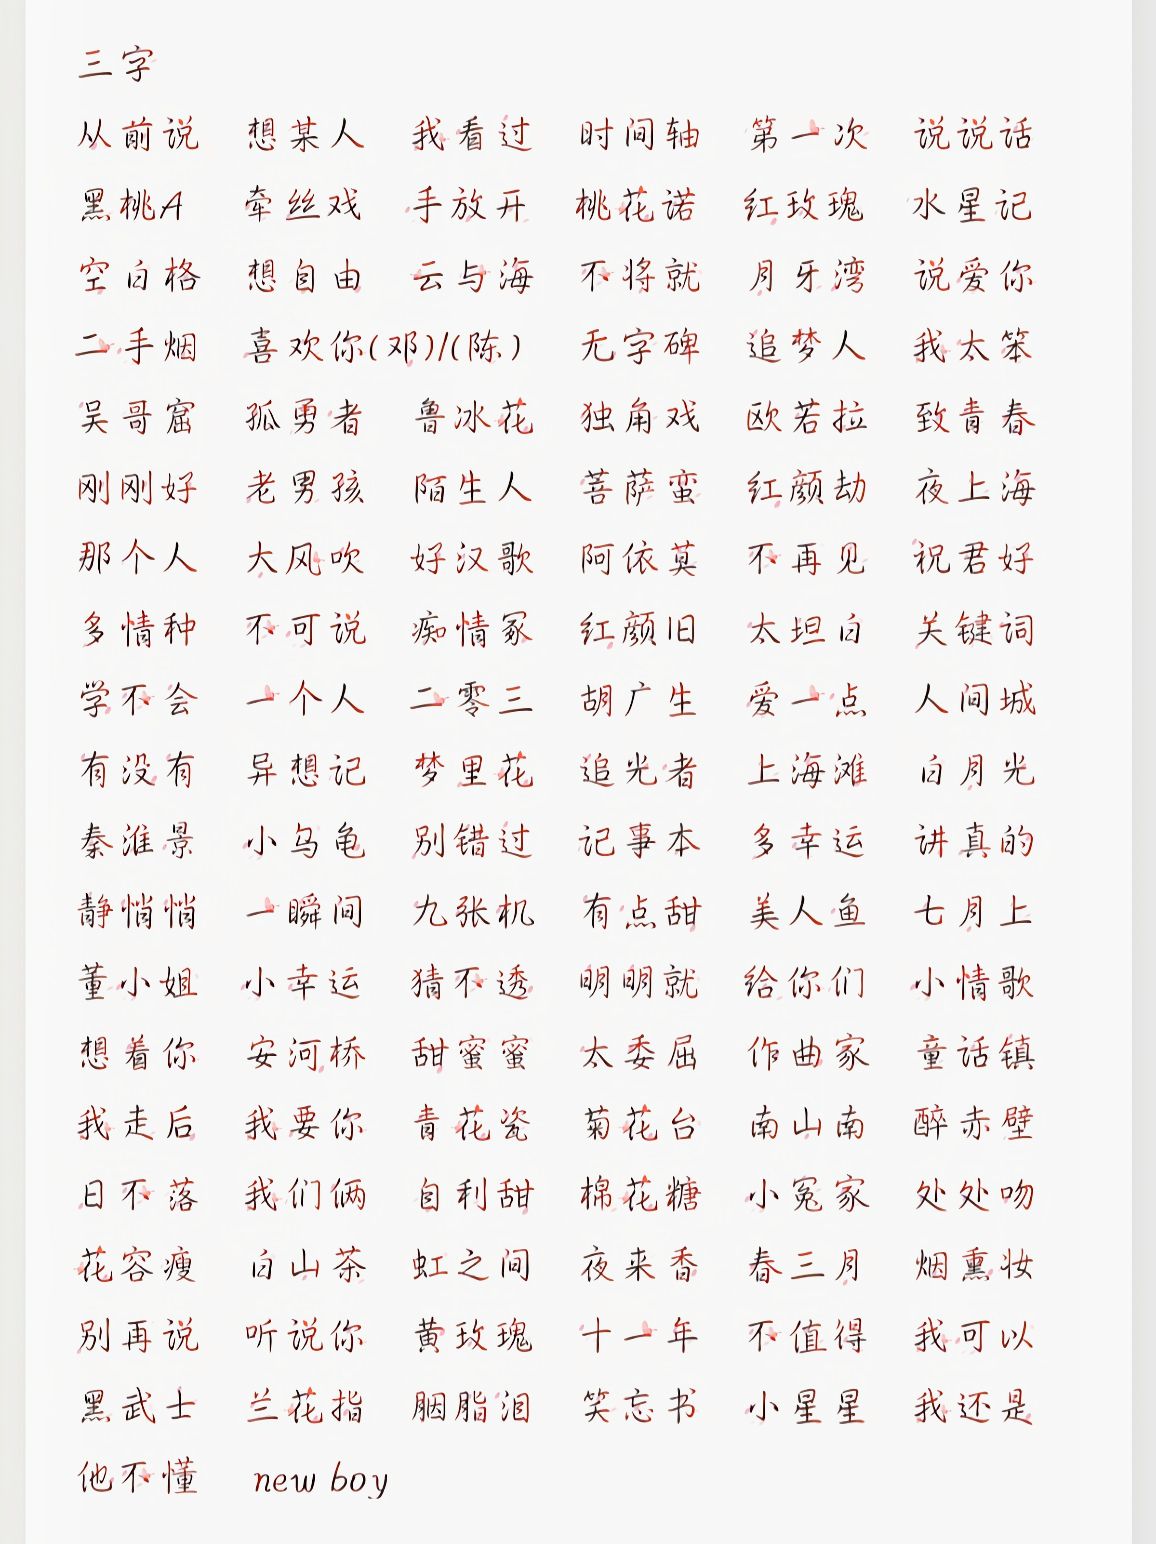 三字
从前说 想某人 我看过 时间轴 第一次 说说话
黑桃A 牵丝戏 手放开 桃花诺 红玫瑰 水星记
空白格 想自由 云与海 不将就 月牙湾 说爱你
二手烟 喜欢你(邓)/(陈) 无字碑 追梦人 我太笨
吴哥窟 孤勇者 鲁冰花 独角戏 欧若拉 致青春
刚刚好 老男孩 陌生人 菩萨蛮 红颜劫 夜上海
那个人 大风吹 好汉歌 阿依莫 不再见 祝君好
多情种 不可说 痴情冢 红颜旧 太坦白 关键词
学不会 一个人 二零三 胡广生 爱一点 人间城
有没有 异想记 梦里花 追光者 上海滩 白月光
秦淮景 小乌龟 别错过 记事本 多幸运 讲真的
静悄悄 一瞬间 九张机 有点甜 美人鱼 七月上
董小姐 小幸运 猜不透 明明就 给你们 小情歌
想着你 安河桥 甜蜜蜜 太委屈 作曲家 童话镇
我走后 我要你 青花瓷 菊花台 南山南 醉赤壁
日不落 我们俩 自利甜 棉花糖 小冤家 处处吻
花容瘦 白山茶 虹之间 夜来香 春三月 烟熏妆
别再说 听说你 黄玫瑰 十一年 不值得 我可以
黑武士 兰花指 胭脂泪 笑忘书 小星星 我还是
他不懂 new boy